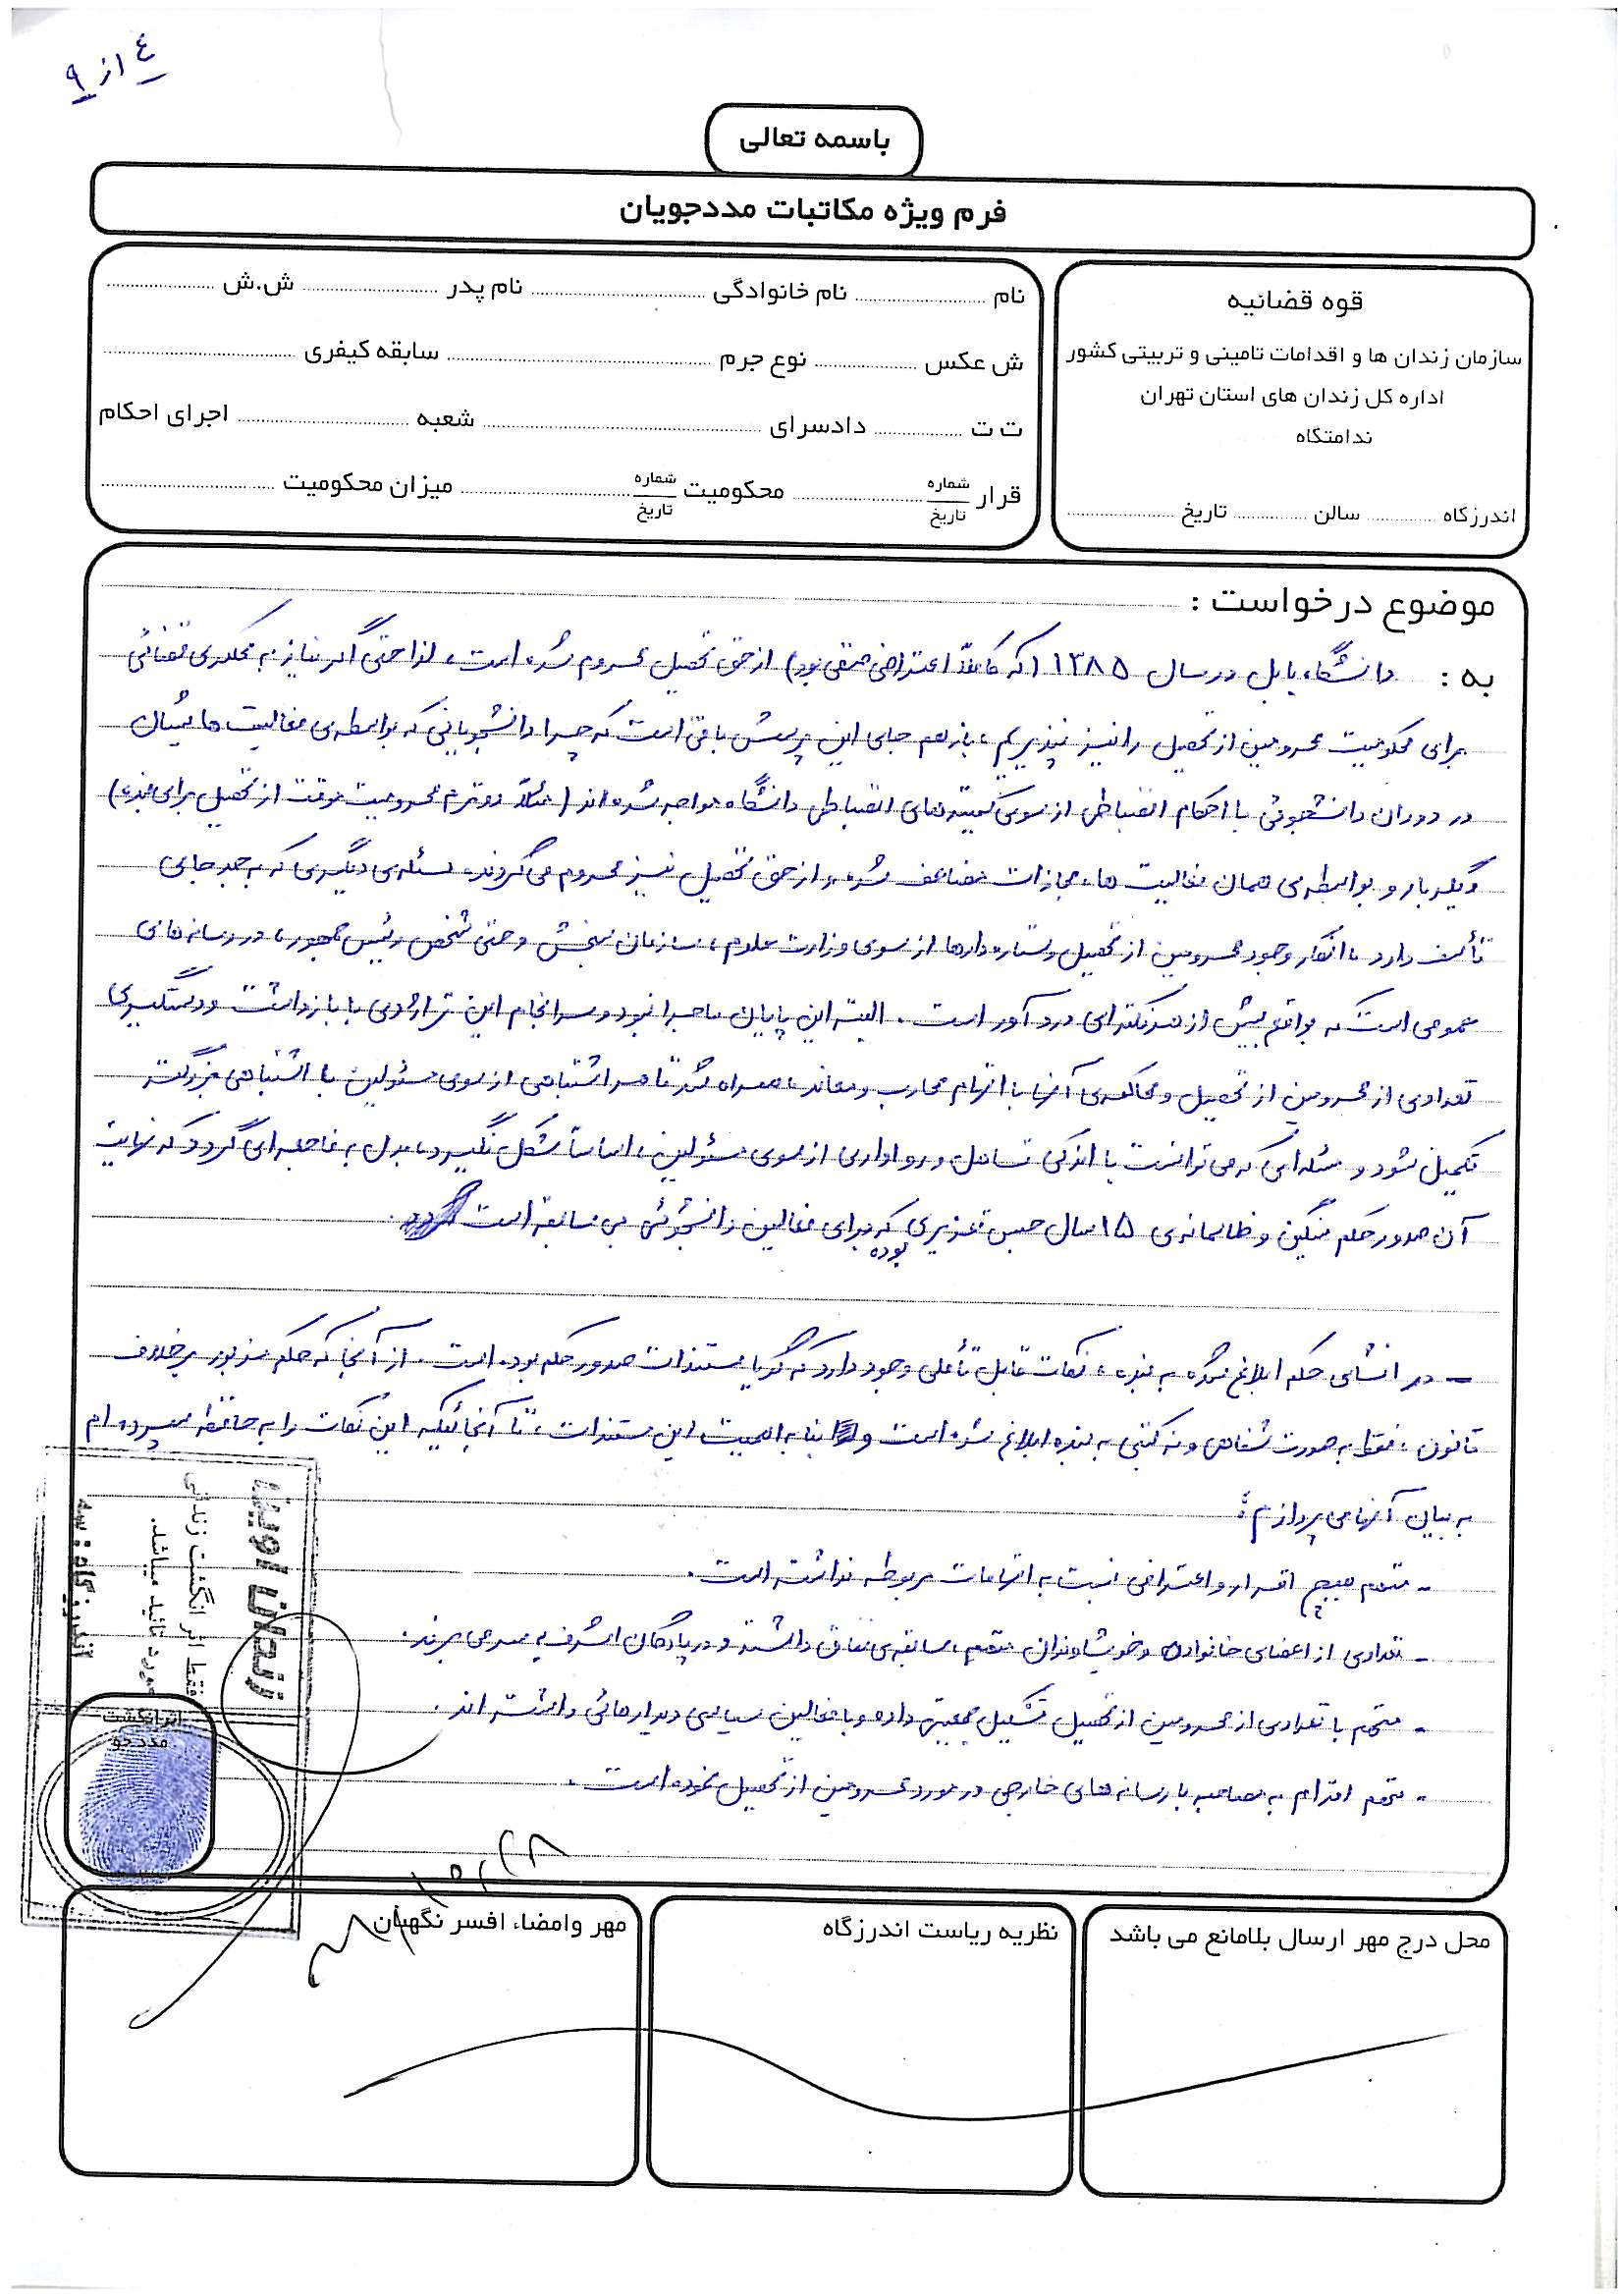 ٤ از ۹
باسمه تعالی
فرم ویژه مکاتبات مددجویان
قوه قضائیه
سازمان زندان ها و اقدامات تامینی و تربیتی کشور
اداره کل زندان های استان تهران
ندامتگاه
اندرزگاه ............ سالن ............ تاریخ ............
نام ............ نام خانوادگی ............ نام پدر ............ ش.ش ............
ش عکس ............ نوع جرم ............ سابقه کیفری ............
ت ت ............ دادسرای ............ شعبه ............ اجرای احکام
قرار شماره تاریخ ............ محکومیت شماره تاریخ ............ میزان محکومیت ............
موضوع درخواست :
به : دانشگاه بابل در سال ۱۳۸۵ (که کاملاً اعتراضی صنفی بود) از حق تحصیل محروم شده است، لذا حتی اگر نیاز به محکمه‌ی قضائی
برای محکومیت محرومین از تحصیل را نیز نپذیریم، باز هم جای این پرسش باقی است که چرا دانشجویانی که بواسطه‌ی فعالیت هایشان
در دوران دانشجوئی با احکام انضباطی از سوی کمیته های انضباطی دانشگاه مواجه شده اند (مثلاً دو ترم محرومیت موقت از تحصیل برای بنده)
دیگر بار و بواسطه‌ی همان فعالیت ها، مجازات مضاعف شده و از حق تحصیل نیز محروم می گردند. مسئله‌ی دیگری که به جد جای
تأسف دارد، انکار وجود محرومین از تحصیل و ستاره دارها از سوی وزارت علوم، سازمان سنجش و حتی شخص رئیس جمهور، در رسانه های
عمومی است که بواقع بیش از هر نکته‌ای درد آور است. البته این پایان ماجرا نبود و سرانجام این تراژدی با بازداشت و دستگیری
تعدادی از محرومین از تحصیل و محاکمه‌ی آنها با اتهام محارب و معاند، همراه شد تا هر اشتباهی از سوی مسئولین با اشتباهی بزرگتر
تکمیل شود و مسئله ای که می توانست با اندکی تساهل و رواداری از سوی مسئولین، اساساً شکل نگیرد، مبدل به فاجعه ای گردد که نهایت
آن صدور حکم سنگین و ظالمانه‌ی ۱۵ سال حبس تعزیری بوده که برای فعالین دانشجوئی بی سابقه است.
– در انشای حکم ابلاغ شده به بنده، نکات قابل تأملی وجود دارد که گویا مستندات صدور حکم بوده است. از آنجا که حکم مزبور برخلاف
قانون، فقط به صورت شفاهی و نه کتبی به بنده ابلاغ شده است و بنا به اهمیت این مستندات، تا آنجائیکه این نکات را به حافظه سپرده ام
به بیان آنها می پردازم:
- متهم هیچ اقرار و اعترافی نسبت به اتهامات مربوطه نداشته است.
- تعدادی از اعضای خانواده و خویشاوندان متهم، سابقه‌ی نفاق داشته و در پادگان اشرف به سر می برند.
- متهم با تعدادی از محرومین از تحصیل تشکیل جمعیتی داده و با فعالین سیاسی دیدارهائی داشته اند.
- متهم اقدام به مصاحبه با رسانه های خارجی در مورد محرومین از تحصیل نموده است.
زندان اوین
فقط اثر انگشت زندانی
مورد تائید میباشد.
اندرزگاه :
اثر انگشت
مددجو
محل درج مهر ارسال بلامانع می باشد
نظریه ریاست اندرزگاه
مهر وامضاء افسر نگهبان